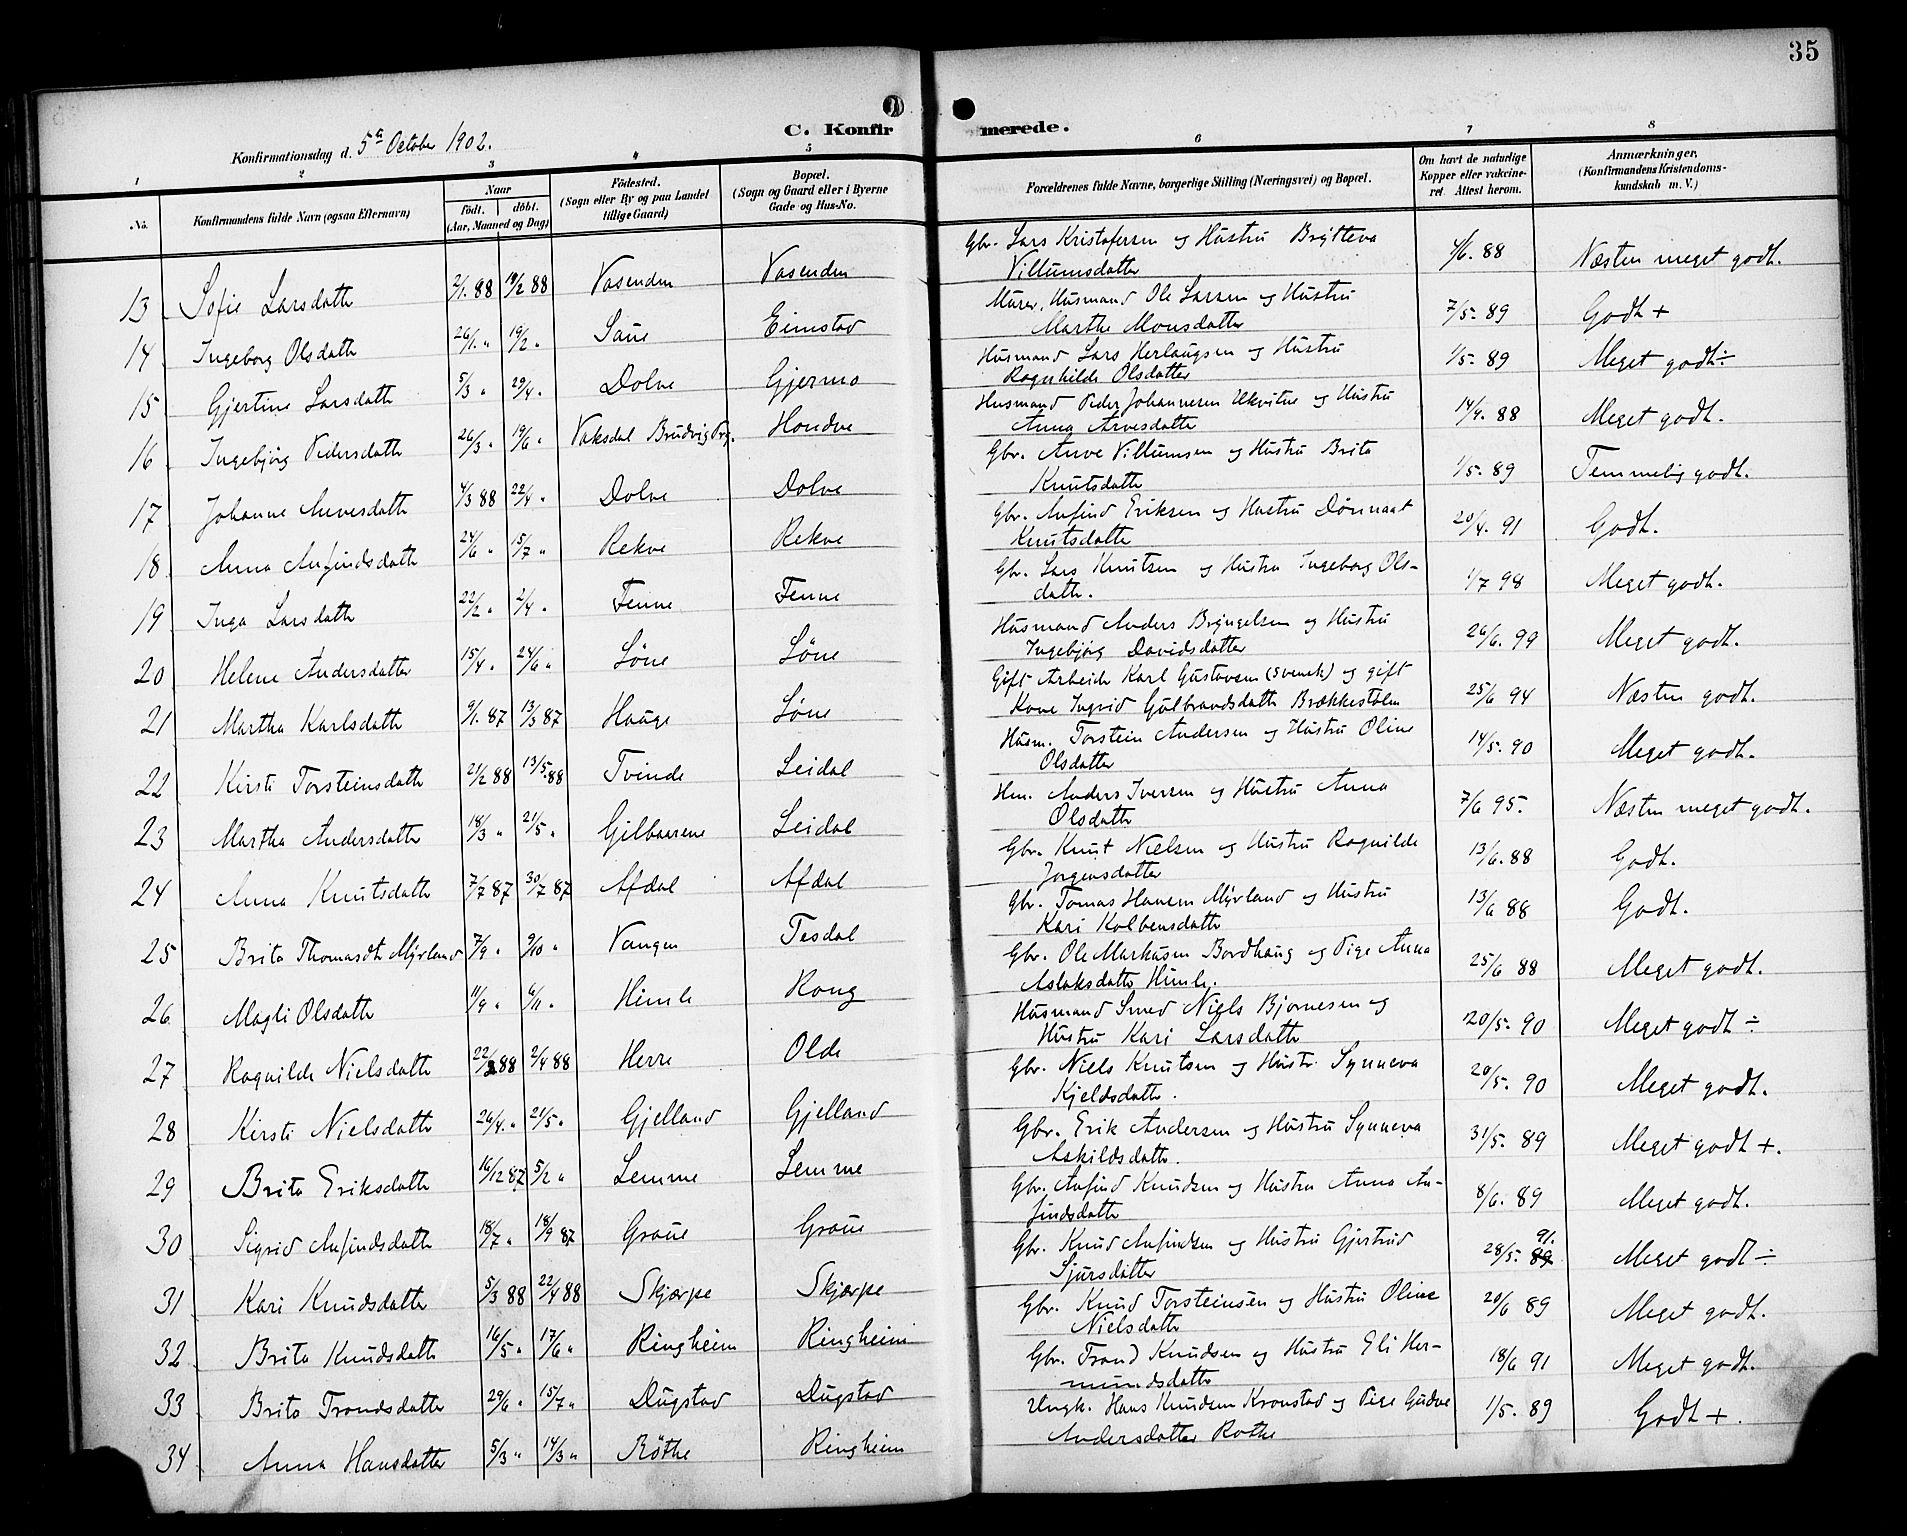 35
C. Konfirmerede.
Konfirmationsdag d. 5ᵗᵉ October 1902.
1 2 3 4 5 6 7 8
No. Konfirmandens fulde Navn (ogsaa Efternavn) Naar født. døbt. (Aar, Maaned og Dag) Födested. (Sogn eller By og paa Landet tillige Gaard) Bopæl. (Sogn og Gaard eller i Byerne Gade og Hus-No. Forældrenes fulde Navne, borgerlige Stilling (Næringsvei) og Bopæl. Om havt de naturlige Kopper eller vaccineret. Attest herom. Anmærkninger. (Konfirmandens Kristendomskundskab m. V.)
13 Sofie Larsdatter 2/1. 88 19/2 88 Vasenden Vasenden Gbr. Lars Kristofersen og Hustru Brytteva Villumsdatter 4/6. 88 Næsten meget godt.
14 Ingeborg Olsdatter 26/1. " 19/2 " Saue Eimstad Murer, Husmand Ole Larsen og Hustru Marthe Monsdatter 7/5. 89 Godt +
15 Gjertine Larsdatter 5/3 " 29/4. " Dolve Gjermo Husmand Lars Herlaugsen og Hustru Ragnhilde Olsdatter 1/5. 89 Meget godt ÷
16 Ingebjørg Pedersdatter 26/3 " 19/6 " Vaksdal Brudvig Prg. Hondve Husmand Peder Johannesen Ukvitne og Hustru Anna Arvesdatter 14/9. 88 Meget godt.
17 Johanne Anvesdatter 4/3 88 22/4 " Dolve Dolve Gbr. Anve Villumsen og Hustru Brita Knutsdatter 1/5. 89 Temmelig godt.
18 Anna Anfindsdatter 24/6 " 15/7 " Rekve Rekve Gbr. Anfind Eriksen og Hustru Dønnaat Knutsdatter 20/4. 91 Godt.
19 Inga Larsdatter 22/2 " 2/4 " Fenne Fenne Gbr. Lars Knutsen og Hustru Ingeborg Olsdatter. 1/7 98 Meget godt.
20 Helene Andersdatter 15/4 " 24/6 " Löne Löne Husmand Anders Bryngelsen og Hustru Ingebjørg Davidsdatter 26/6. 99 Meget godt.
21 Martha Karlsdatter 9/1. 87 13/3 87 Hauge Löne Gift Arbeider Karl Gustavsen (svensk) og gift Kone Ingrid Gulbrandsdatter Brækkestølen 25/6 94 Næsten godt.
22 Kirsti Torsteinsdatter 21/2 88 13/5. 88 Tvinde Leidal Husm. Torstein Andersen og Hustru Oline Olsdatter 14/5. 90 Meget godt.
23 Martha Andersdatter 18/3 " 21/5 " Gilbaarene Leidal Hm. Anders Iversen og Hustru Anna Olsdatter 7/6 95. Næsten meget godt.
24 Anna Knutsdatter 7/7 87 30/7 87 Afdal Afdal Gbr. Knut Nielsen og Hustru Ragnilde Jørgensdatter 13/6. 88 Godt.
25 Brita Thomasdtr Myrland 7/9 " 9/10 " Vangen Tesdal Gbr. Tomas Hansen Myrland og Hustru Kari Kolbensdatter 13/6 88 Godt.
26 Magli Olsdatter 11/9 " 6/11 " Himle Rong Gbr. Ole Markusen Bordhaug og Pige Anna Aslaksdatter Himle. 25/6 88 Meget godt.
27 Ragnilde Nielsdatter 22/2 88 2/4 88 Herre Olde Husmand Smed Niels Bjørnesen og Hustru Kari Larsdatter 20/5. 90 Meget godt ÷
28 Kirsti Nielsdatter 26/4. " 21/5 " Gjelland Gjelland Gbr. Niels Knutsen og Hustr. Synneva Kjeldsdatter. 20/5. 90 Meget godt.
29 Brita Eriksdatter 16/12 87 5/2 " Lemme Lemme Gbr. Erik Andersen og Hustru Synneva Askildsdatter. 31/5. 89 Meget godt +.
30 Sigrid Anfindsdatter 18/7 " 18/9 87 Graue Graue Gbr. Anfind Knudsen og Hustru Anna Anfindsdatter 8/6. 89 Meget godt.
31 Kari Knudsdatter 5/3 88 22/4 88 Skjærpe Skjærpe Gbr. Knud Anfindsen og Hustru Gjertrud Sjursdatter 28/5. 89 91. Meget godt ÷
32 Brita Knudsdatter 16/5 " 17/6 " Ringheim Ringheim Gbr. Knud Torsteinsen og Hustru Oline Nielsdatter 20/6 89 Meget godt.
33 Brita Trondsdatter 29/6 " 15/7 " Dugstad Dugstad Gbr. Trond Knudsen og Hustru Eli Hermundsdatter 18/6 91 Meget godt.
34 Anna Hansdatter 5/3 " 14/3 " Röthe Ringheim Ungk. Hans Knudsen Kronstad og Pige Gudve Andersdatter Rothe 1/5. 89 Godt +.